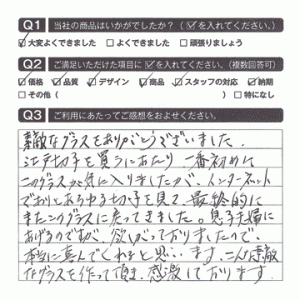 Q1 当社の商品はいかがでしたか？（☑を入れてください。）
☑大変よくできました □よくできました □頑張りましょう
Q2 ご満足いただけた項目に☑を入れてください。（複数回答可）
☑価格 ☑品質 ☑デザイン ☑商品 ☑スタッフの対応 ☑納期
□その他（ ） □特になし
Q3 ご利用にあたってご感想をおよせください。
素敵なグラスをありがとうございました。
江戸切子を買うにあたり一番初めに
このグラスが気に入りましたが、インターネット
でありとあらゆる切子を見て、最終的に
またこのグラスに戻ってきました。息子夫婦に
あげるのですが、欲しがっておりましたので、
本当に喜んでくれると思います。こんな素敵
なグラスを作って頂き、感激しております。